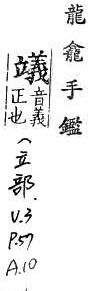 龍龕手鑑
音義
正也
(立部.
V.3
P.57
A.10